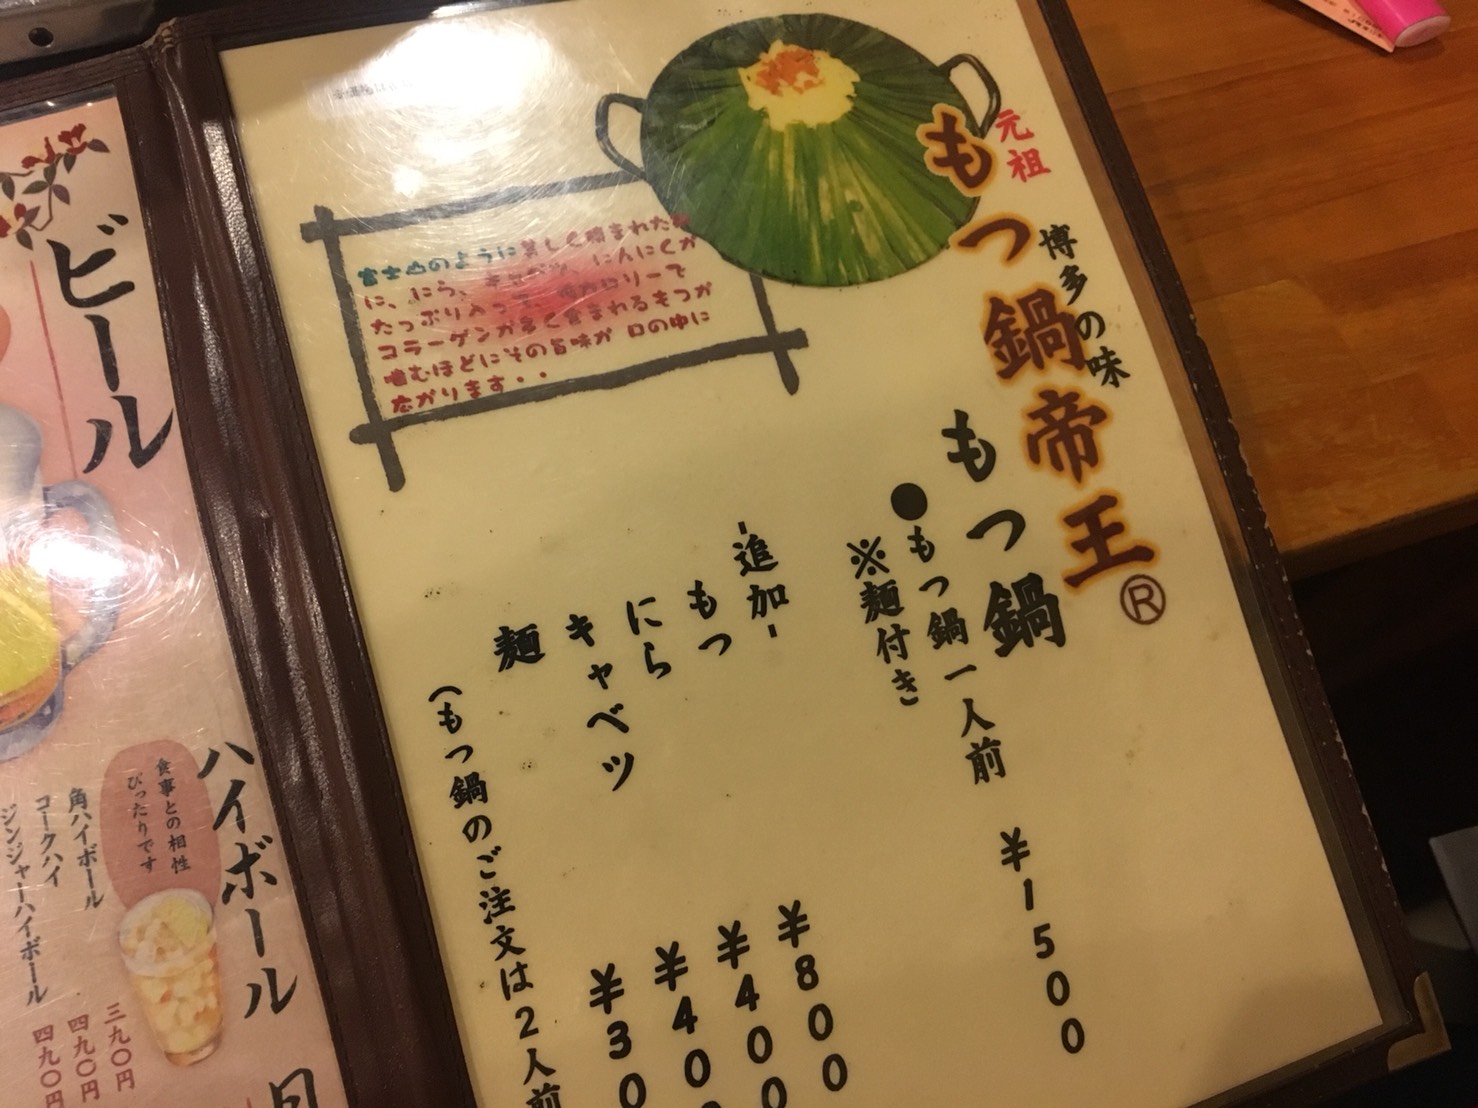 元祖
もつ鍋帝王®
博多の味
もつ鍋
●もつ鍋一人前 ¥1500
※麺付き
-追加-
もつ ¥800
にら ¥400
キャベツ ¥40
麺 ¥30
(もつ鍋のご注文は2人前
富士山のように美しく積まれた
に、にら、キャベツ、にんにくが
たっぷり入って、カロリーで
コラーゲンが多く含まれるもつが
噛むほどにその旨味が口の中に
広がります・・
ビール
ハイボール
食事との相性
ぴったりです
角ハイボール 三九〇円
コークハイ 四九〇円
ジンジャーハイボール 四九〇円